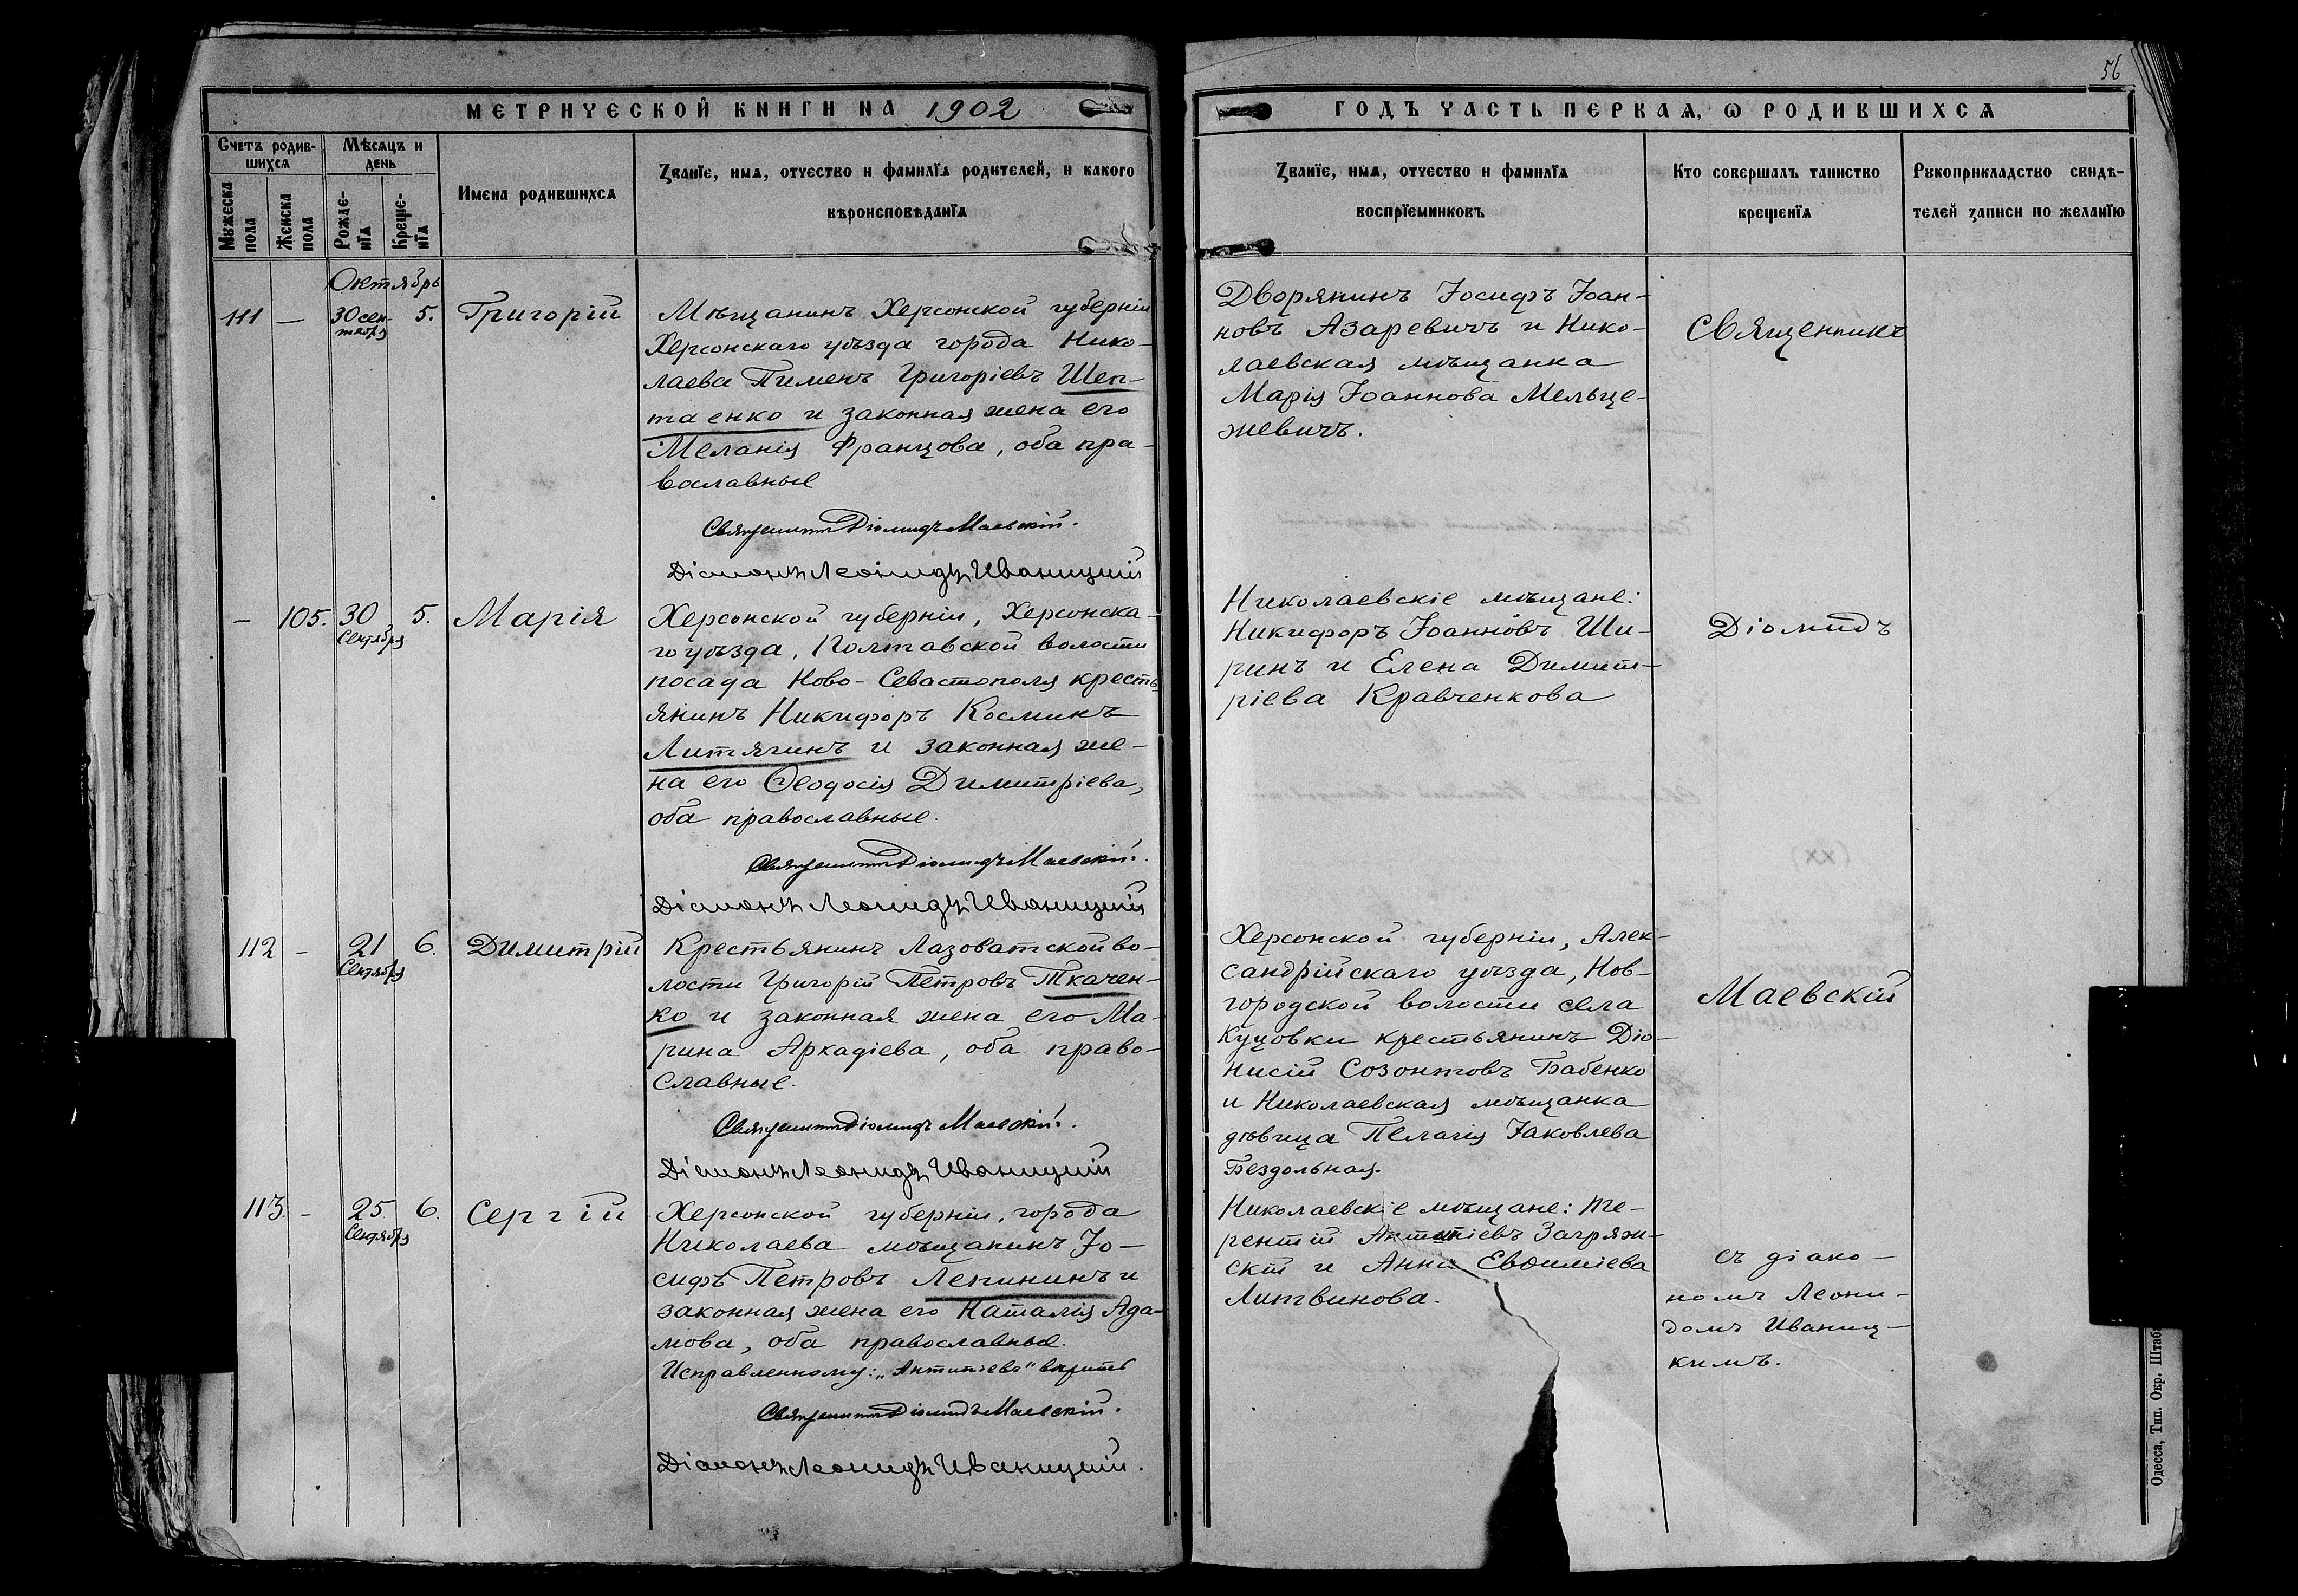 56
МЕТРИЧЕСКОЙ КНИГИ НА 1902
ГОДЪ ЧАСТЬ ПЕРВАЯ, Ѡ РОДИВШИХСЯ
Счетъ родив-
шихся
Мѣсяцъ и
день
Мужеска
пола
Женска
пола
Рожде-
нїя
Креще-
нїя
Имена родившихся
Званїе, имя, отчество и фамилїя родителей, и какого
вѣроисповѣданїя
Званїе, имя, отчество и фамилїя
воспрїемниковъ
Кто совершалъ таинство
крещенїя
Рукоприкладство свидѣ-
телей записи по желанїю
Октябрь
111 — 30 сен-
тября 5. Григорій
Мѣщанинъ Херсонской губерніи
Херсонскаго уѣзда города Нико-
лаева Пименъ Григоріевъ Шеп-
таенко и законная жена его
Меланія Францова, оба пра-
вославные
Священникъ Діомидъ Маевскій.
Діаконъ Леонидъ Иваницкій
Дворянинъ Іосифъ Іоан-
новъ Азаревичъ и Нико-
лаевская мѣщанка
Марія Іоаннова Мельце-
жевичъ.
Священникъ
— 105. 30
Сентября 5. Марія
Херсонской губерніи, Херсонска-
го уѣзда, Полтавской волости
посада Ново-Севастополя кресть-
янинъ Никифоръ Косминъ
Литягинъ и законная же-
на его Ѳеодосія Димитріева,
оба православные.
Священникъ Діомидъ Маевскій.
Діаконъ Леонидъ Иваницкій
Николаевскіе мѣщане:
Никифоръ Іоанновъ Ши-
ринъ и Елена Димит-
ріева Кравченкова
Діомидъ
112 — 21
Сентября 6. Димитрій
Крестьянинъ Лазоватской во-
лости Григорій Петровъ Ткачен-
ко и законная жена его Ма-
рина Аркадіева, оба право-
славные.
Священникъ Діомидъ Маевскій.
Діаконъ Леонидъ Иваницкій
Херсонской губерніи, Алек-
сандрійскаго уѣзда, Нов-
городской волости села
Куцовки крестьянинъ Діо-
нисій Созонтовъ Бабенко
и Николаевская мѣщанка
дѣвица Пелагія Іаковлева
Бездольная.
Маевскій
113. — 25
Сентября 6. Сергій
Херсонской губерніи, города
Николаева мѣщанинъ Іо-
сифъ Петровъ Лепининъ и
законная жена его Наталія Ада-
мова, оба православные.
Исправленному: „Антипіевъ" вѣрить
Священникъ Діомидъ Маевскій.
Діаконъ Леонидъ Иваницкій.
Николаевскіе мѣщане: Те-
рентій Антипіевъ Загряж-
скій и Анна Евѳиміева
Литвинова.
съ діако-
номъ Леони-
домъ Иваниц-
кимъ.
Одесса, Тип. Окр. Штаба